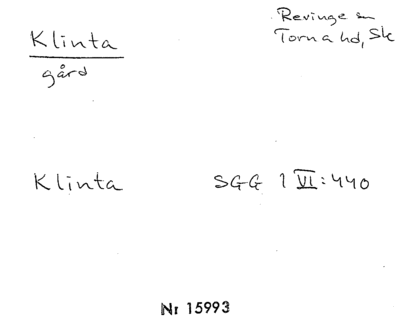 Klinta
gård
Revinge sn
Torna hd, Sk
Klinta SGG 1 VI:440
Nr 15993